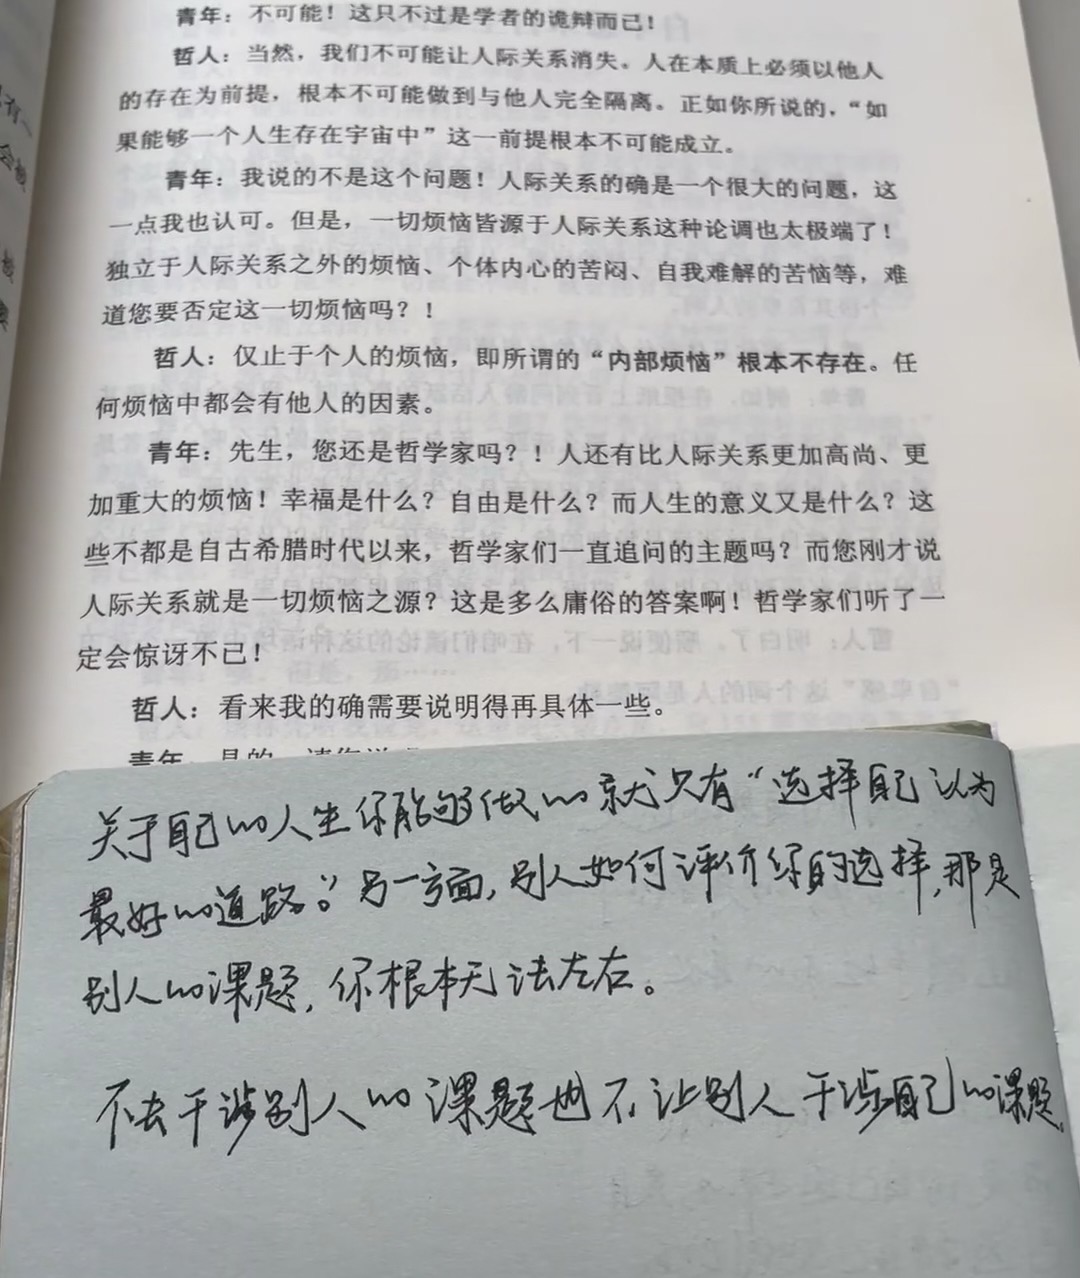 青年：不可能！这只不过是学者的诡辩而已！
哲人：当然，我们不可能让人际关系消失。人在本质上必须以他人
的存在为前提，根本不可能做到与他人完全隔离。正如你所说的，“如
果能够一个人生存在宇宙中”这一前提根本不可能成立。
青年：我说的不是这个问题！人际关系的确是一个很大的问题，这
一点我也认可。但是，一切烦恼皆源于人际关系这种论调也太极端了！
独立于人际关系之外的烦恼、个体内心的苦闷、自我难解的苦恼等，难
道您要否定这一切烦恼吗？！
哲人：仅止于个人的烦恼，即所谓的“内部烦恼”根本不存在。任
何烦恼中都会有他人的因素。
青年：先生，您还是哲学家吗？！人还有比人际关系更加高尚、更
加重大的烦恼！幸福是什么？自由是什么？而人生的意义又是什么？这
些不都是自古希腊时代以来，哲学家们一直追问的主题吗？而您刚才说
人际关系就是一切烦恼之源？这是多么庸俗的答案啊！哲学家们听了一
定会惊讶不已！
哲人：看来我的确需要说明得再具体一些。
青年：是的，请您说
关于自己的人生你能够做的就只有“选择自己认为
最好的道路。”另一方面，别人如何评价你的选择，那是
别人的课题，你根本无法左右。
不去干涉别人的课题也不让别人干涉自己的课题。